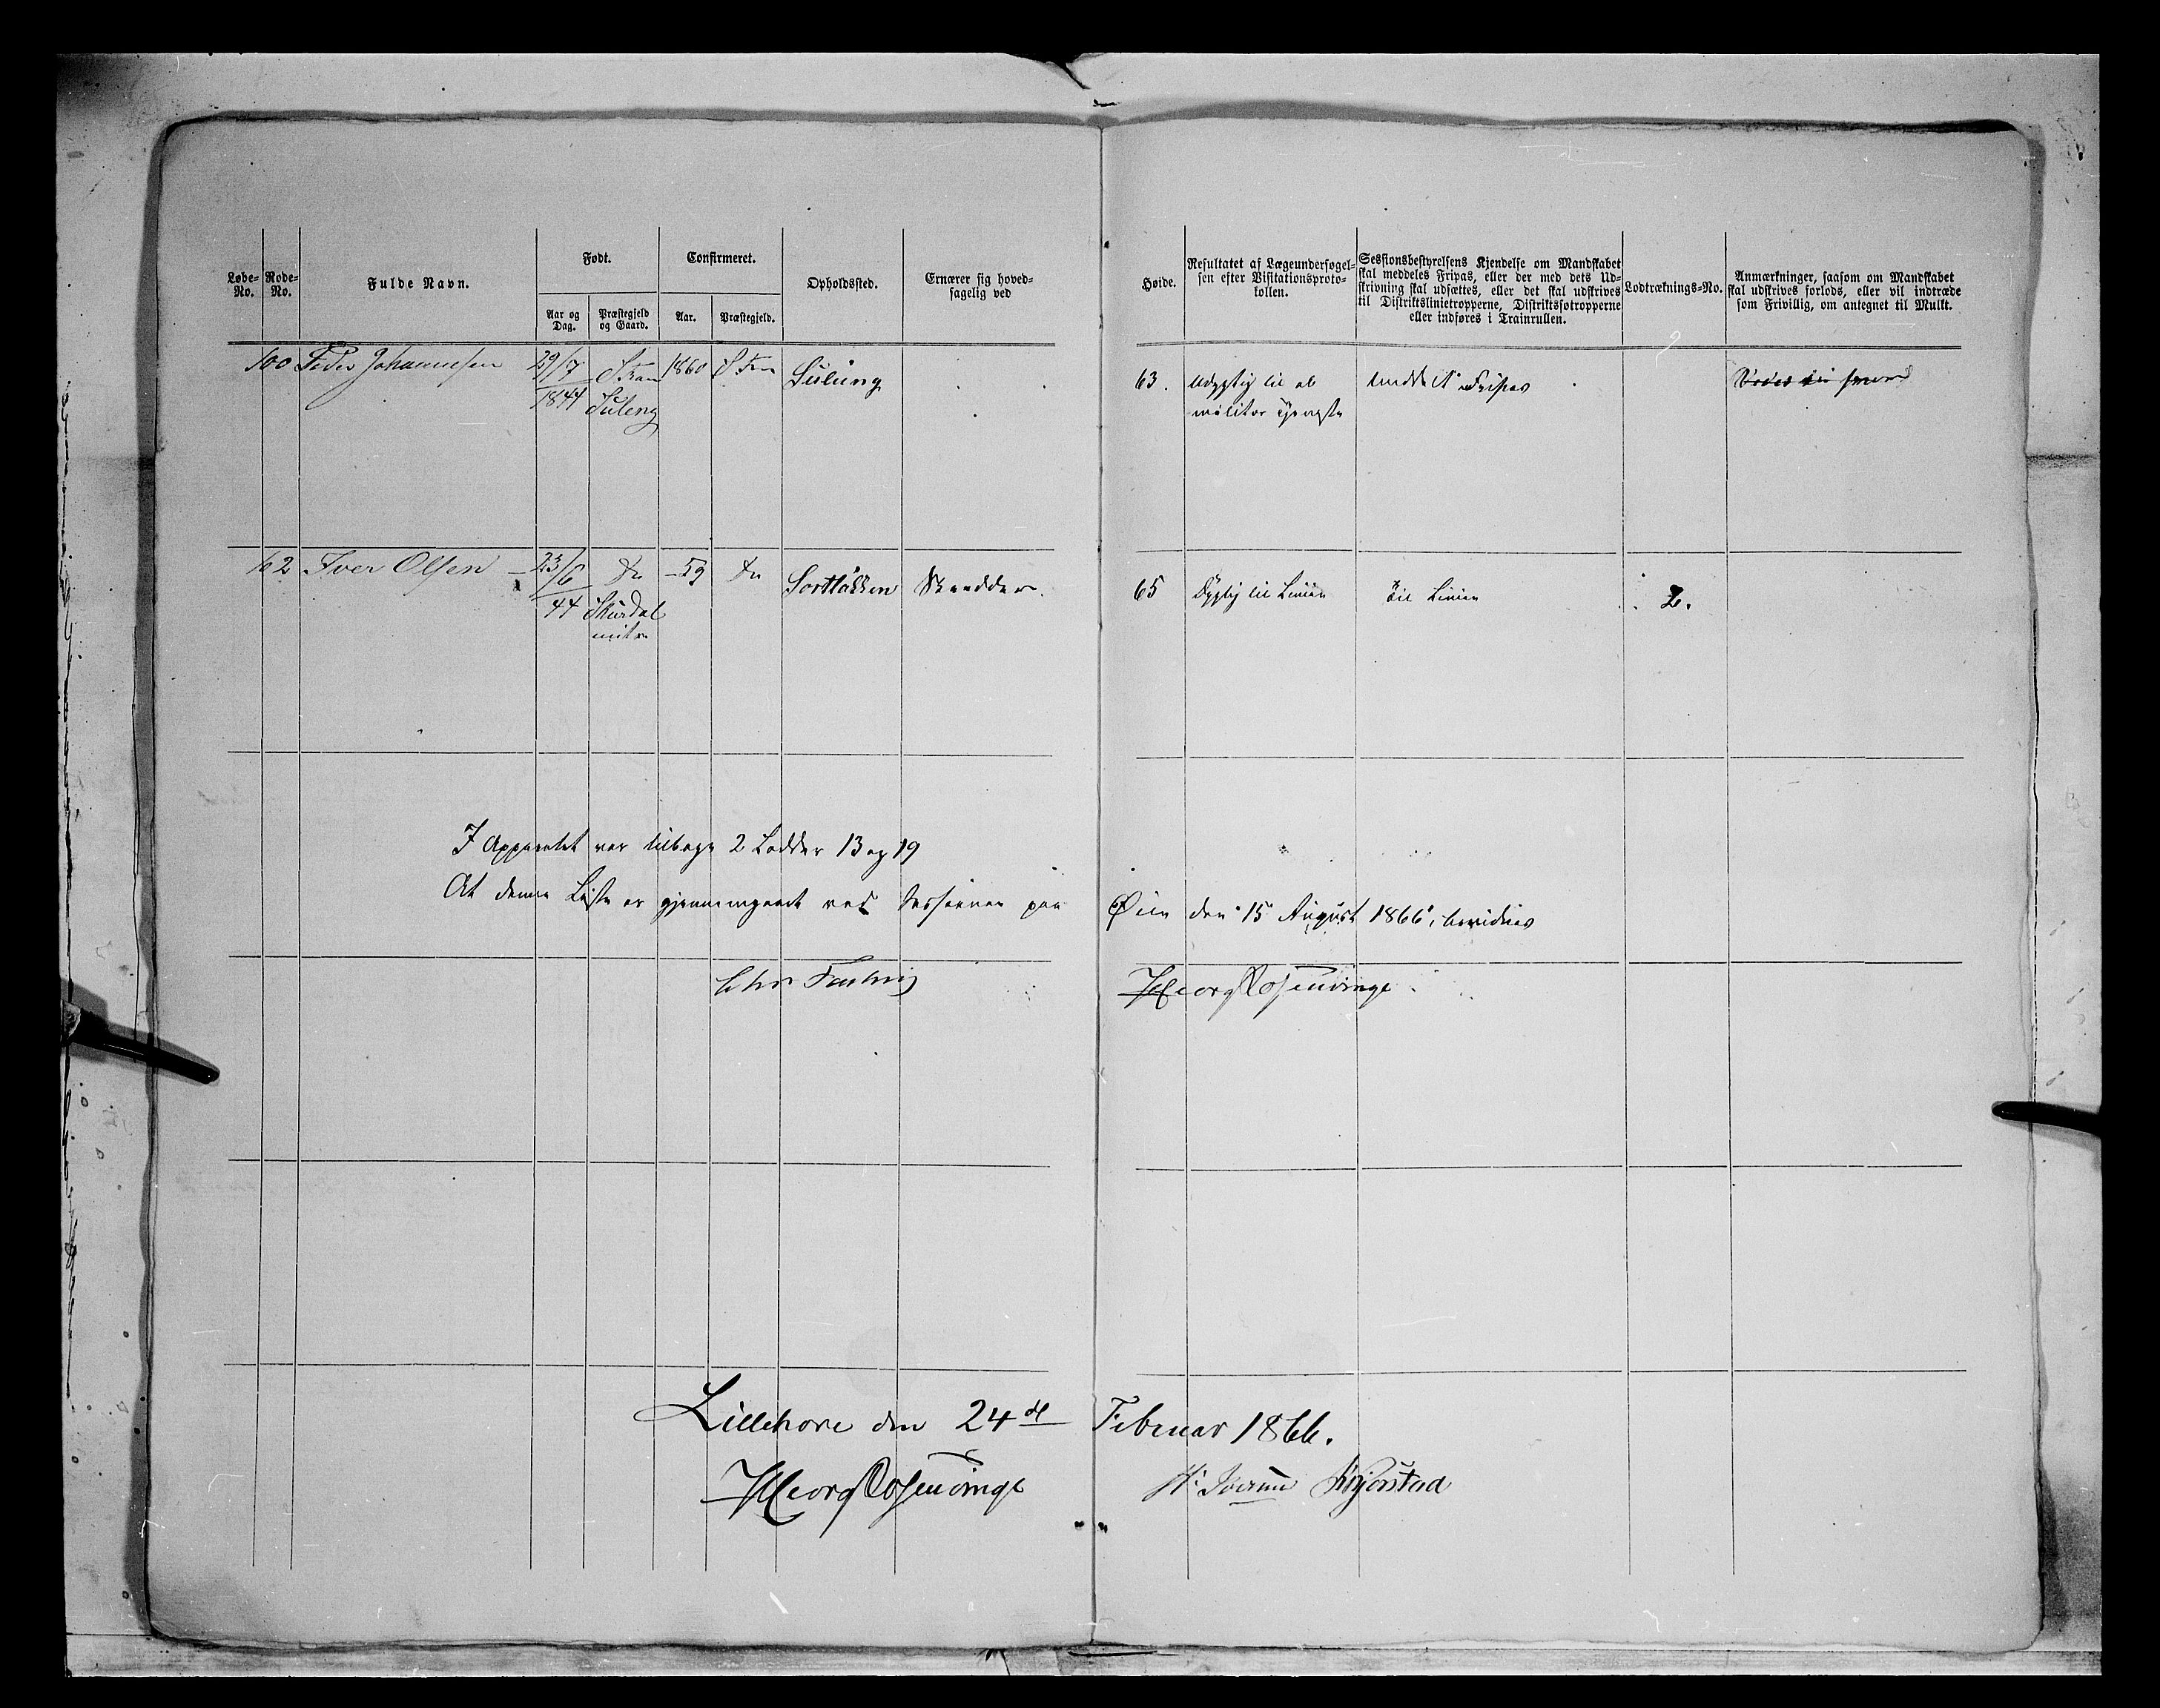 Løbe-No.
Rode-No.
Fulde Navn.
Født.
Aar og Dag.
Præstegjeld og Gaard.
Confirmeret.
Aar.
Præstegjeld.
Opholdssted.
Ernærer sig hoved-
sagelig ved
Høide.
Resultatet af Lægeundersøgel-
sen efter Visitationsproto-
kollen.
Sessionsbestyrelsens Kjendelse om Mandskabet
skal meddeles Fripas, eller der med dets Ud-
skrivning skal udsættes, eller det skal udskrives
til Distriktslinietropperne, Distriktsfotropperne
eller indføres i Trainrullen.
Lodtræknings-No.
Anmærkninger, saasom om Mandskabet
skal udskrives forlods, eller vil indtræde
som Frivillig, om antegnet til Mulkt.
100 Peder Johannesen 29/7 1860 Sulung
1844 Suleng
63. Udygtig til al Fripas
militær Tjeneste
62 Iver Olsen 23/6 Do -59 Do Sortløkken Skrædder.
44 Skurdal
65 Dygtig til Linien Til Linien 2.
I Apparatet var tilbage 2 Lodder 13 og 19
At denne Liste er gjennemgaaet ved Sessionen paa Øien den 15 August 1866, bevidnes
Georg Rosenvinge
Lillehove den 24de Februar 1866.
Georg Rosenvinge H. Iversen Kjorstad